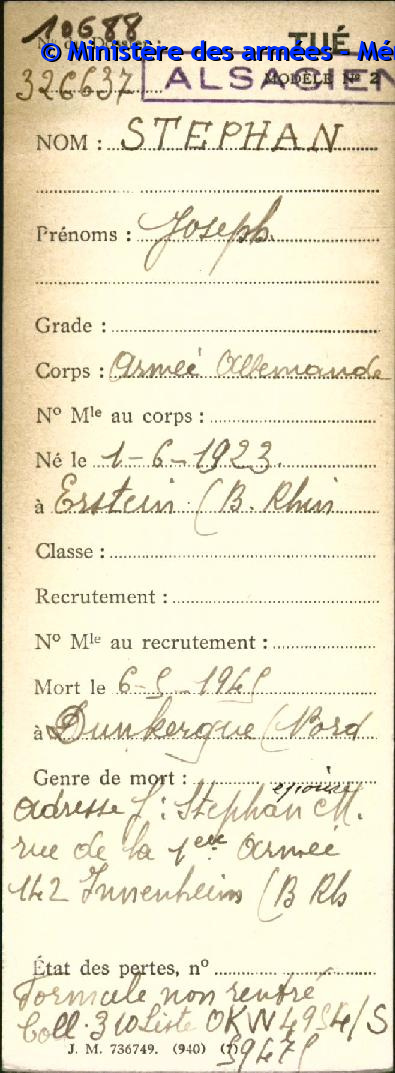 10688
TUÉ
© Ministère des armées - Mé
326637
ALSACIEN
MODÈLE Nº 2
NOM : STEPHAN
Prénoms : Joseph
Grade :
Corps : Armée Allemande
Nº Mle au corps :
Né le 1-6-1923
à Erstein (B. Rhin
Classe :
Recrutement :
Nº Mle au recrutement :
Mort le 6-5-1945
à Dunkerque (Nord
Genre de mort :
épouse
adresse f: Stephan M.
rue de la 1ere Armée
142 Innenheim (B Rh
État des pertes, nº
Formule non rentré
Coll. 310 Liste OKW 4954/S
J. M. 736749. (940) (7)
59475